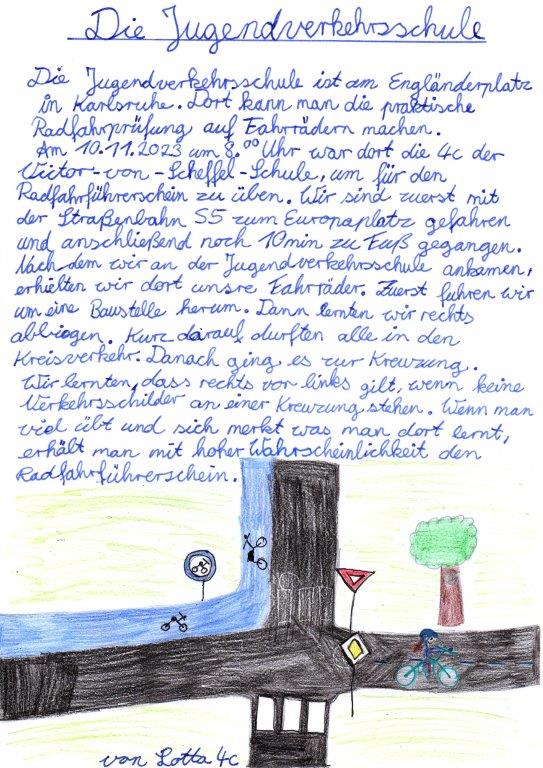 Die Jugendverkehrsschule
Die Jugendverkehrsschule ist am Engländerplatz
in Karlsruhe. Dort kann man die praktische
Radfahrprüfung auf Fahrrädern machen.
Am 10.11.2023 um 8.⁰⁰ Uhr war dort die 4c der
Victor-von-Scheffel-Schule, um für den
Radfahrführerschein zu üben. Wir sind zuerst mit
der Straßenbahn S5 zum Europaplatz gefahren
und anschließend noch 10min zu Fuß gegangen.
Nach dem wir an der Jugendverkehrsschule ankamen,
erhielten wir dort unsre Fahrräder. Zuerst fuhren wir
um eine Baustelle herum. Dann lernten wir rechts
abbiegen. Kurz darauf durften alle in den
Kreisverkehr. Danach ging es zur Kreuzung.
Wir lernten, dass rechts vor links gilt, wenn keine
Verkehrsschilder an einer Kreuzung stehen. Wenn man
viel übt und sich merkt was man dort lernt,
erhält man mit hoher Wahrscheinlichkeit den
Radfahrführerschein.
von Lotta 4c